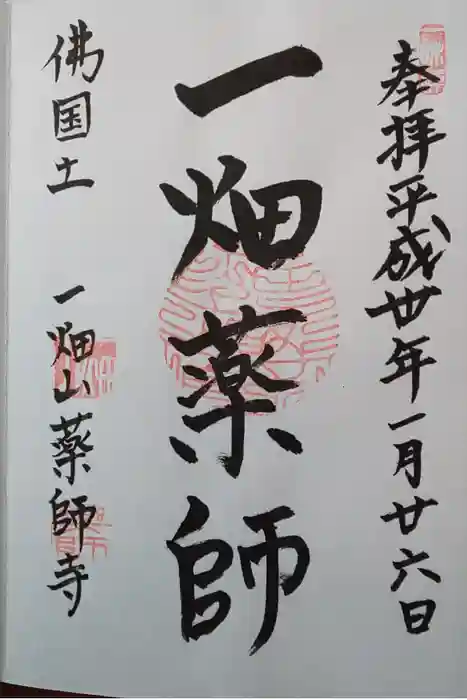 奉拝平成卅年一月廿六日
一畑薬師
佛国土 一畑山薬師寺